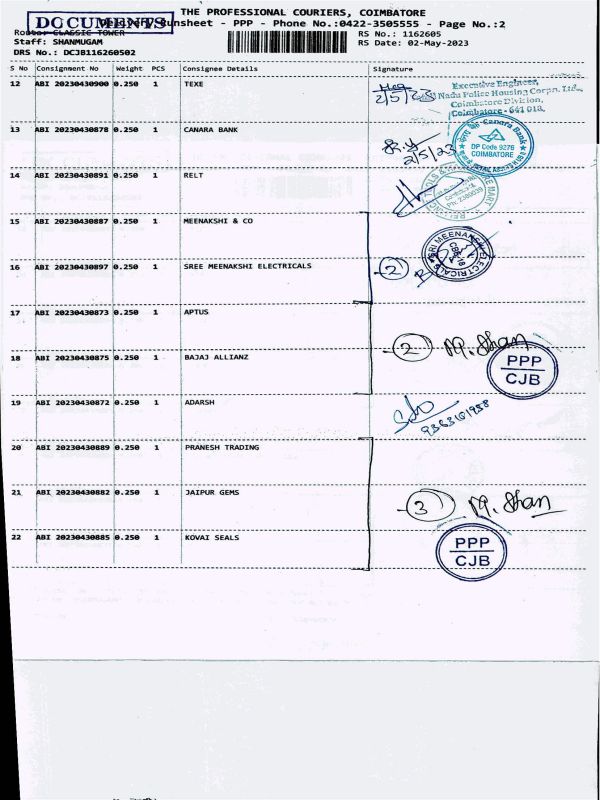 THE PROFESSIONAL COURIERS, COIMBATORE
DOCUMENTS
Delivery Runsheet - PPP - Phone No.:0422-3505555 - Page No.:2
Route: CLASSIC TOWER RS No.: 1162605
Staff: SHANMUGAM RS Date: 02-May-2023
DRS No.: DCJB116260502
S No Consignment No Weight PCS Consignee Details Signature
12 ABI 20230430900 0.250 1 TEXE
2/5/23
Executive Engineer,
Nadu Police Housing Corpn. Ltd.,
Coimbatore Division,
Coimbatore - 641 018.
13 ABI 20230430878 0.250 1 CANARA BANK
2/5/23
Canara Bank
DP Code 9276
COIMBATORE
14 ABI 20230430891 0.250 1 RELT
15 ABI 20230430887 0.250 1 MEENAKSHI & CO
SRI MEENAKSHI ELECTRICALS
16 ABI 20230430897 0.250 1 SREE MEENAKSHI ELECTRICALS
2
17 ABI 20230430873 0.250 1 APTUS
2 M. Shan
18 ABI 20230430875 0.250 1 BAJAJ ALLIANZ
PPP
CJB
19 ABI 20230430872 0.250 1 ADARSH
9363161958
20 ABI 20230430889 0.250 1 PRANESH TRADING
21 ABI 20230430882 0.250 1 JAIPUR GEMS
3 M. Shan
22 ABI 20230430885 0.250 1 KOVAI SEALS
PPP
CJB